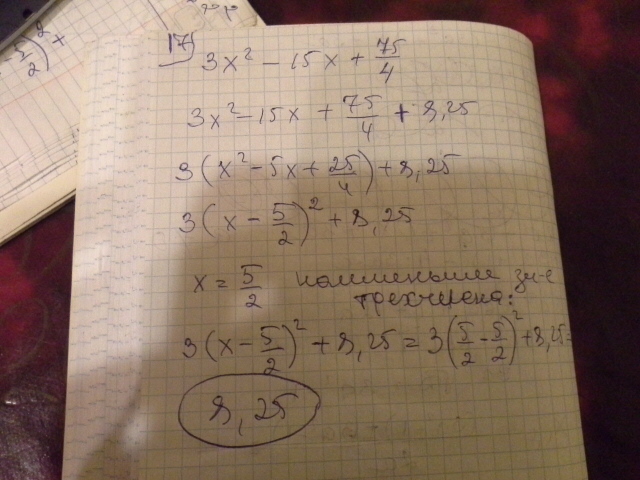 17)
3x² - 15x + 75/4
3x² - 15x + 75/4 + 8,25
3(x² - 5x + 25/4) + 8,25
3(x - 5/2)² + 8,25
x = 5/2 наименьшее зн-е
трехчлена:
3(x - 5/2)² + 8,25 = 3(5/2 - 5/2)² + 8,25 =
8,25